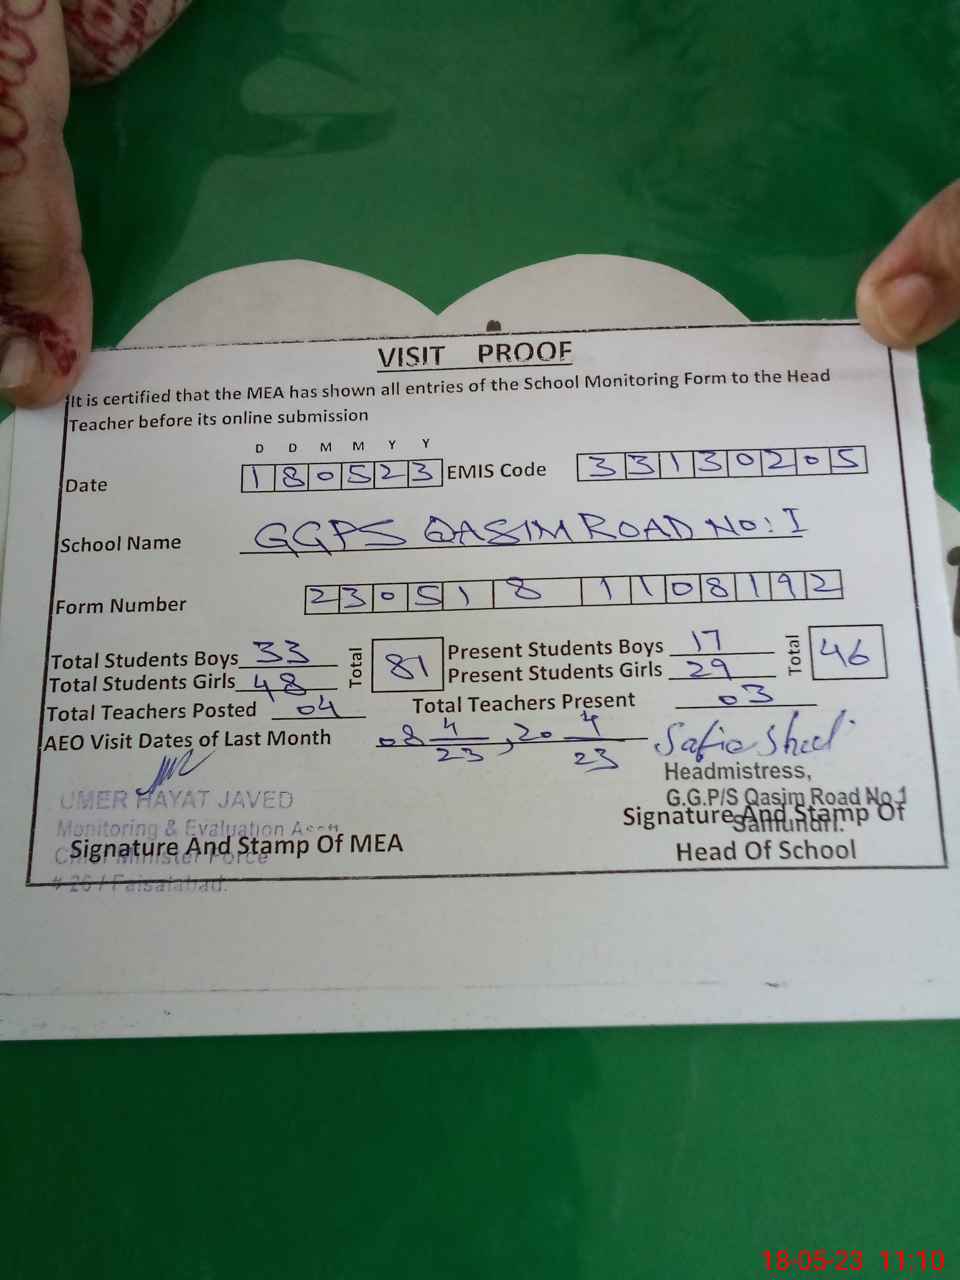 VISIT PROOF
It is certified that the MEA has shown all entries of the School Monitoring Form to the Head
Teacher before its online submission
D D M M Y Y
Date 180523 EMIS Code 33130205
School Name GGPS QASIM ROAD NO: I
Form Number 230518 1108192
Total Students Boys 33 Total 81 Present Students Boys 17 Total 46
Total Students Girls 48 Present Students Girls 29
Total Teachers Posted 04 Total Teachers Present 03
AEO Visit Dates of Last Month 08 4/23, 20 4/23 Safia
Headmistress,
UMER HAYAT JAVED G.G.P/S Qasim Road No.1
Signature And Stamp Of
Samundri.
Monitoring & Evaluation Asstt
Signature And Stamp Of MEA Head Of School
Chief Minister Force
# 26 / Faisalabad.
18-05-23 11:10